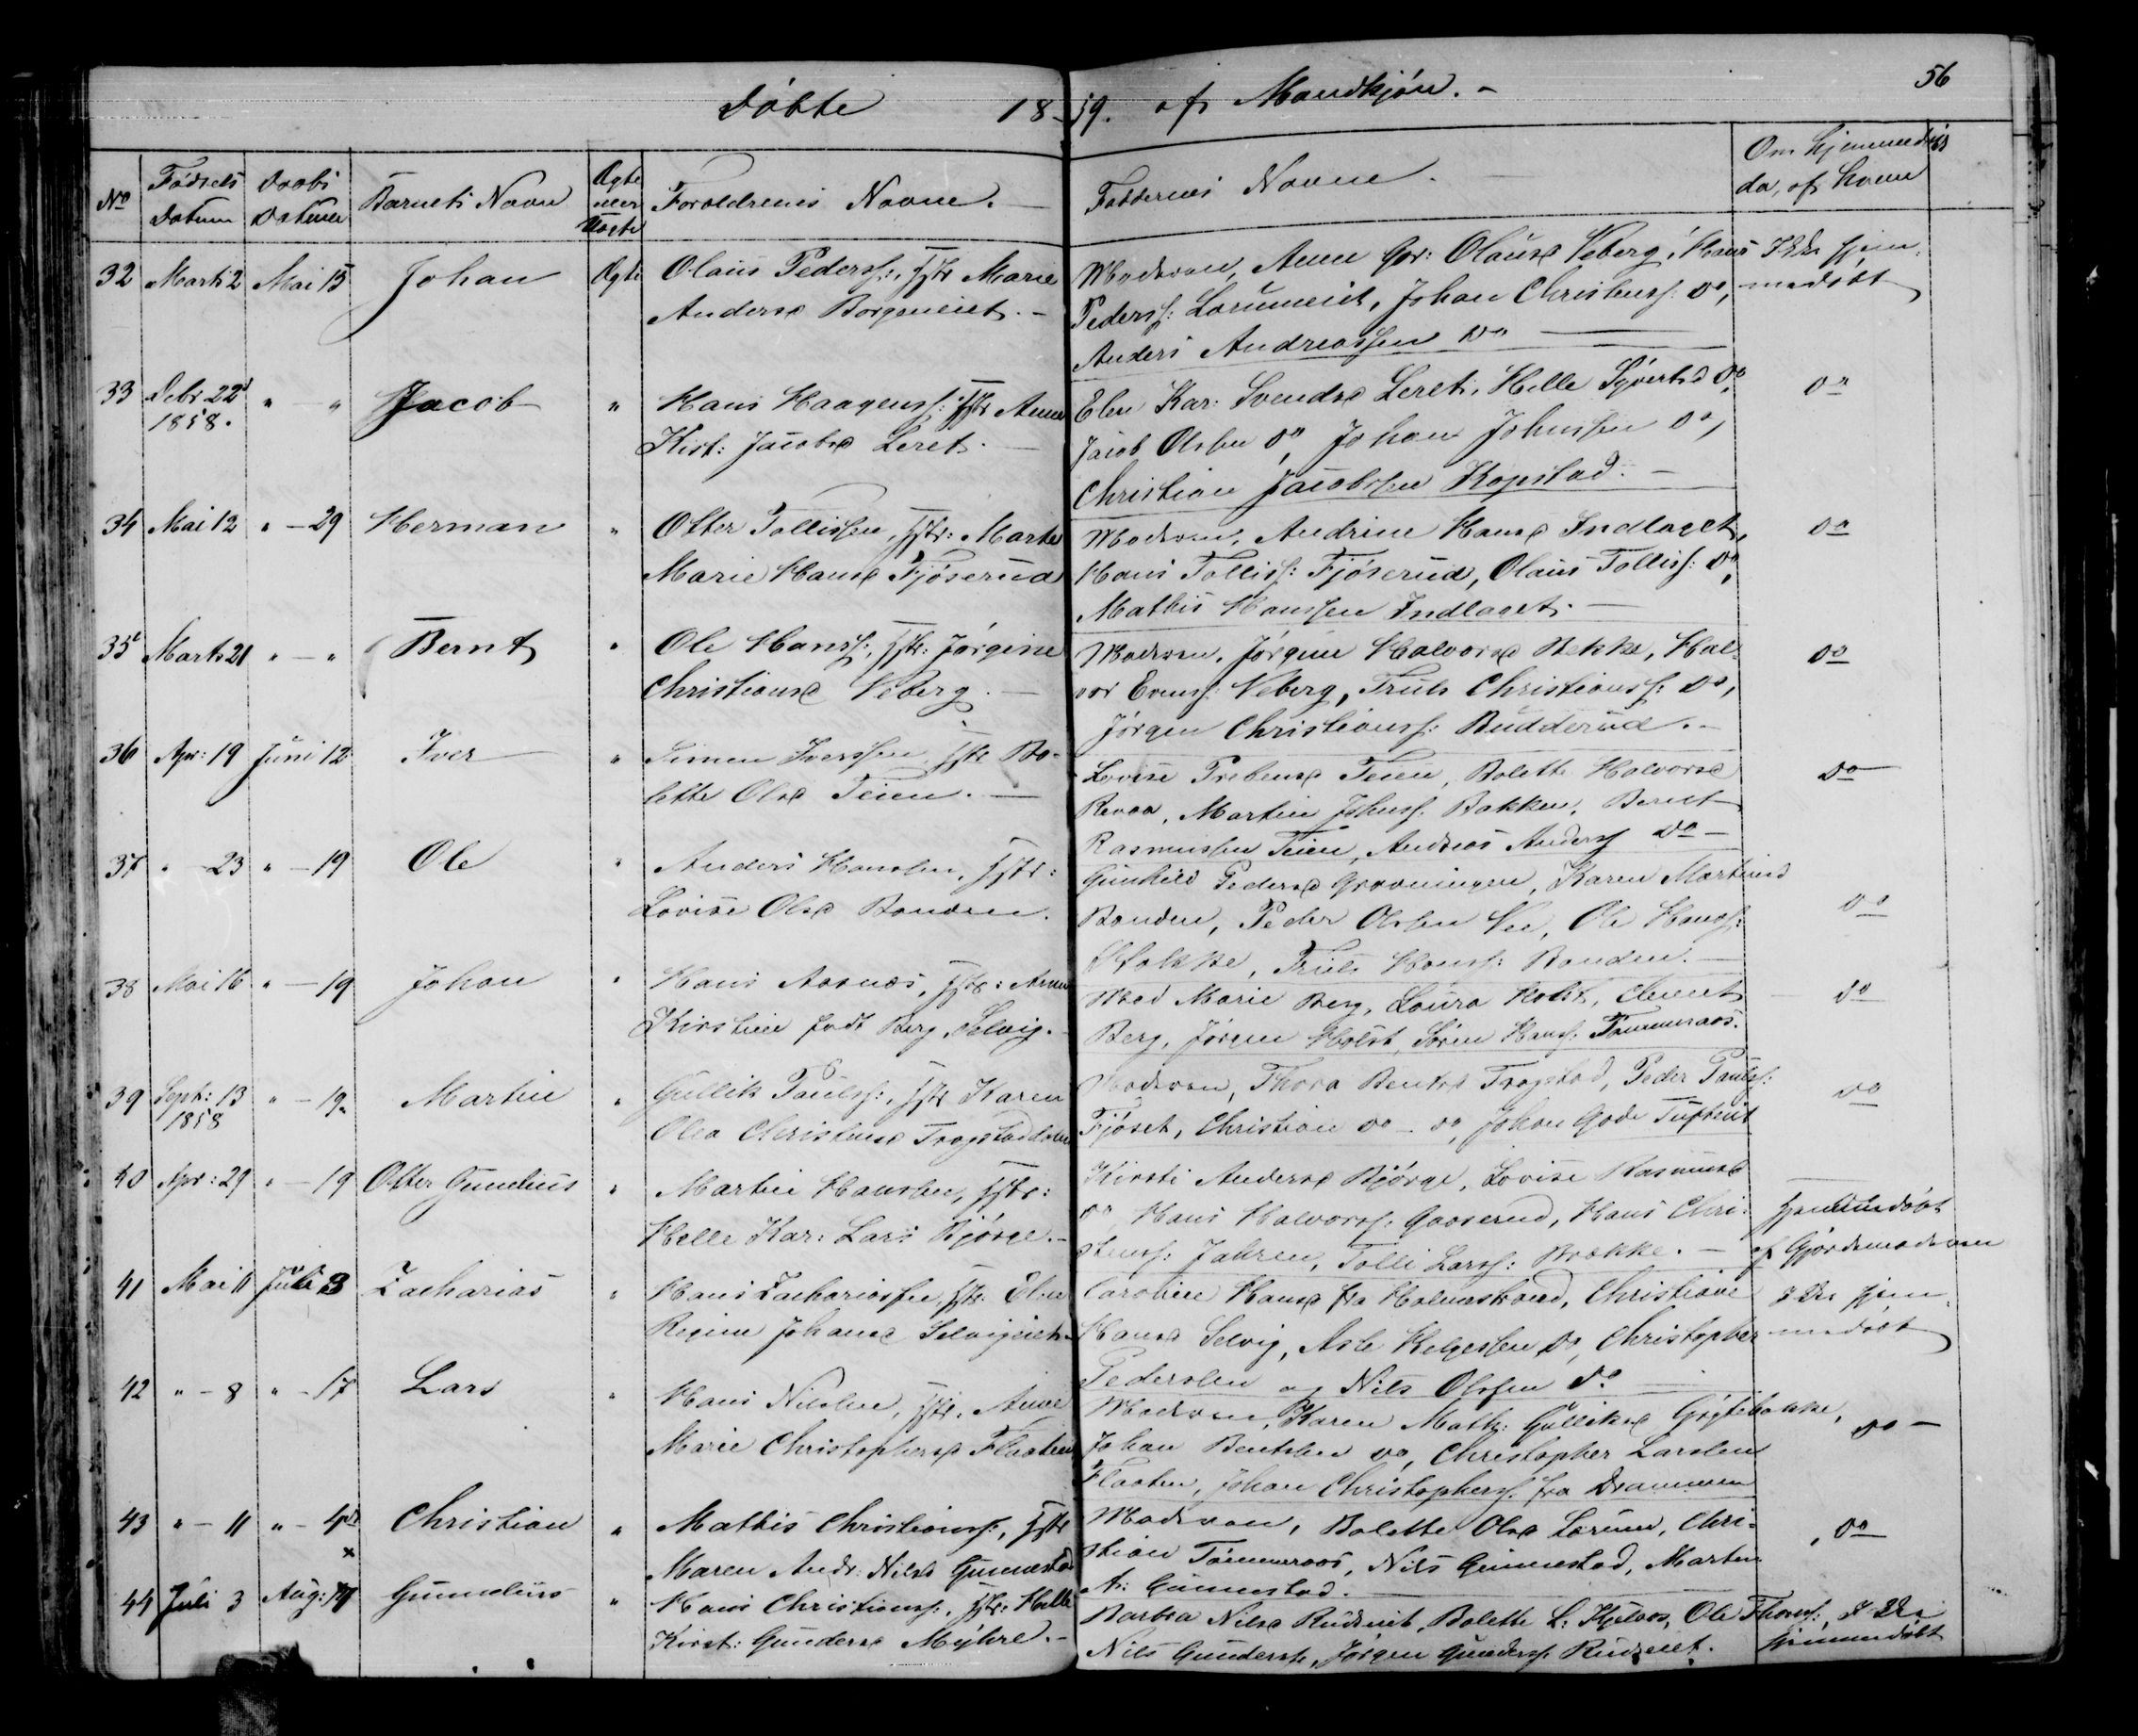 Döbte 1859. af Mandkjön. -
56
No
Födsels Datum
Daabs Datum
Barnets Navn
Ægte eller Uægte
Forældrenes Navne. -
Faddernes Navne.
Om hjemmedøbt
da, af hvem
32 Marts 2 Mai 15 Johan Ægte Olaus Pederss:, Hstr Marie
Andersd Borgeneiet. -
Madmoren, Anne Gur: Olausd Veberg, Hans
Pederss: Lorumeiet, Johan Christenss: Do,
Anders Andreassen Do
Ikke hjem-
medöbt
33 Debr 22d 1858. " - " Jacob " Hans Haagenss: Hstr Anne
Kist: Jacobsd Leret. -
Elen Kar: Svendsd Leret, Helle Syvertsd Do,
Jacob Olssen Do, Johan Johnssen Do,
Christian Jacobssen Kopstad. -
Do
34 Mai 12 " - 29 Herman " Otter Tollissen, Hstr: Marte
Marie Hansd Fjöserud
Madmoren, Andrine Hansd Indlaget,
Hans Tolliss: Fjöserud, Olaus Tolliss: Do,
Mathis Hanssen Indlaget. -
Do
35 Marts 21 " - " Bernt " Ole Hanss:, Hstr: Jörgine
Christiansd Veberg. -
Madmoren, Jörgine Halvorsd Bekke, Hal-
vor Evenss: Veberg, Truls Christianss: Do,
Jörgen Christianss: Budderud. -
Do
36 Apr: 19 Juni 12 Iver " Simen Iverssen, Hstr Bo-
lette Olsd Teien. -
Lovise Prebensd Teien, Bolette Halvorsd
Revaa, Martin Johnss. Bakken, Bernt
Rasmussen Teien, Andreas Anderss Do -
Do
37 " - 23 " - 19 Ole " Anders Hanssen, Hstr:
Lovise Olsd Bonden.
Gunhild Pedersd Gravningen, Karen Martinsd
Bonden, Peder Olssen Vee, Ole Hanss:
Truls Hanss: Bonden. -
Do
38 Mai 16 " - 19 Johan " Hans Aasnæs, Hstr: Anne
Kirstine födt Berg, Selvig. -
Mad Marie Berg, Laura Holst, Clement
Berg, Jörgen Holst, Sören Hanss: Tømmeraas.
Do
39 Septr: 13 1858 " - 19 Martin " Gullik Paulss:, Hstr Karen
Olea Christensd
Madmoren, Thora Bentsd Trogstad, Peder Paulss:
Fjöset, Christian Do - Do, Johan Gode Tufteeiet
Do
40 Apr: 29 " - 19 Otter Gunelius " Martin Hanssen, Hstr:
Helle Kar: Lars Bjørge. -
Kirsti Andersd Bjørge, Lovise Rasmusd
Do Hans Halvorss: Gaaserud, Hans Chri-
stenss: Jahren, Tolli Larss: Brække. -
Hjemmedöbt
af Gjordemoderen
41 Mai 11 Juli 3 Zacharias " Hans Zachariassen, Hstr. Elen
Regine Johansd Selvigeiet
Caroline Hansd fra Holmestrand, Christiane
Hansd Selvig, Asle Helgessen Do, Christopher
Pedersen og Nils Olssen Do
Ikke hjem-
medöbt
42 " - 8 " - 17 Lars " Hans Nilssen, Hstr. Anne
Marie Christophersd Flaaten
Madmoren, Karen Math: Gulliksd
Johan Bentssen Do, Christopher Larssen
Flaaten, Johan Christopherss. fra Drammen
Do -
43 " - 11 " - Christian " Mathis Christianss:, Hstr
Maren Andr: Nilsd Gunnestad
Madmoren, Bolette Olsd Lorum, Chri-
stian Tømmeraas, Nils Gunnestad, Marten
A: Gunnestad. -
Do
44 Juli 3 Aug: Gunnelius " Hans Christianss:, Hstr: Helle
Kirst: Gundersd Myhre. -
Barbra Nilsd Rudeeiet, Bolette L: Ole Thoress:
Nils Gunderss, Jörgen Gunderss. Rudeeiet.
Ikke
hjemmedöbt